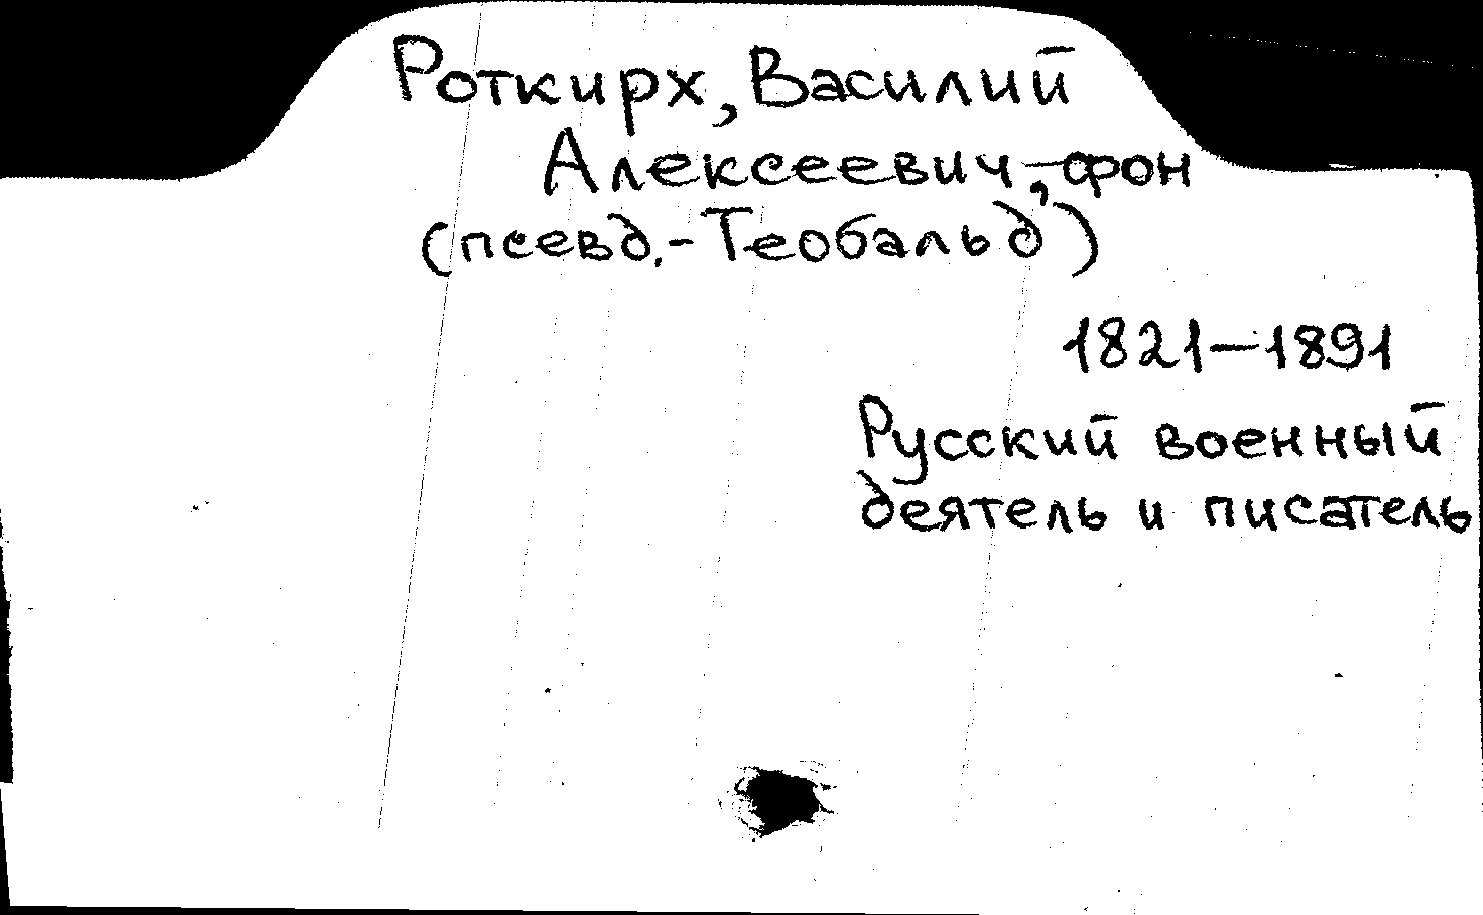 Роткирх, Василий
Алексеевич, фон
(псевд.-Теобальд)
1821-1891
Русский военный
деятель и писатель